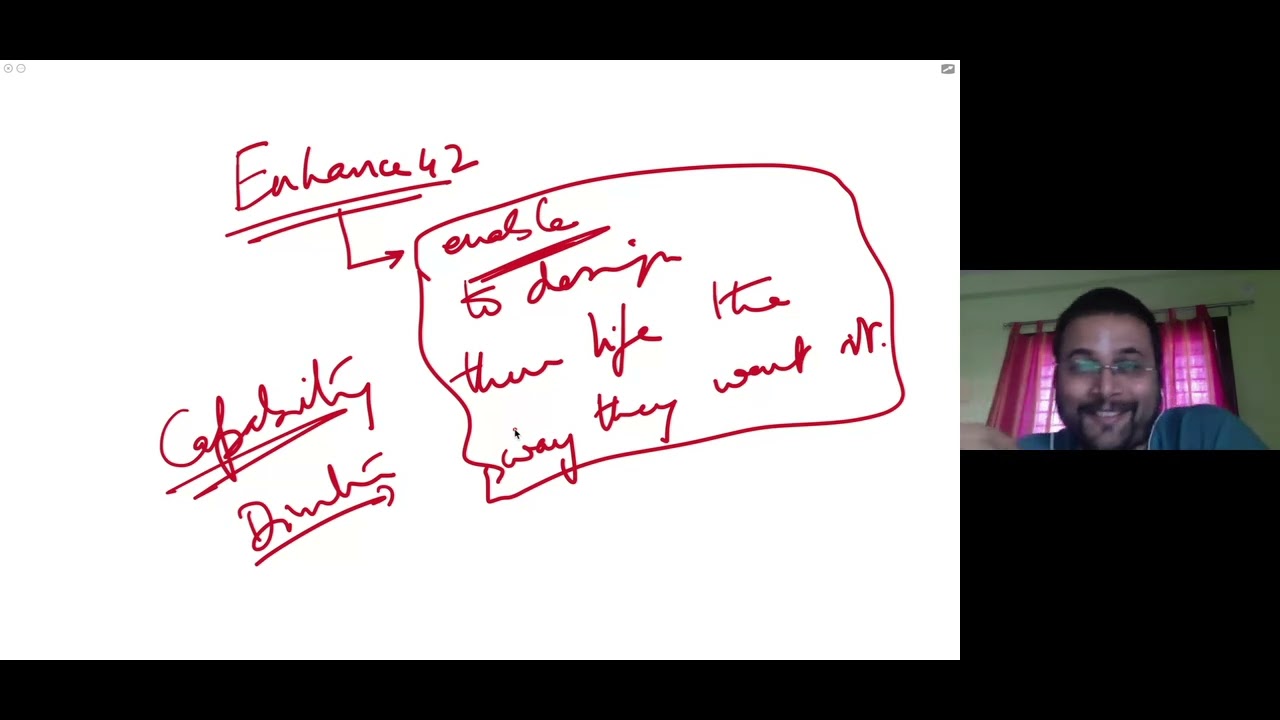 Enhance 42
enable
to design
their life the
way they want it.
Capability